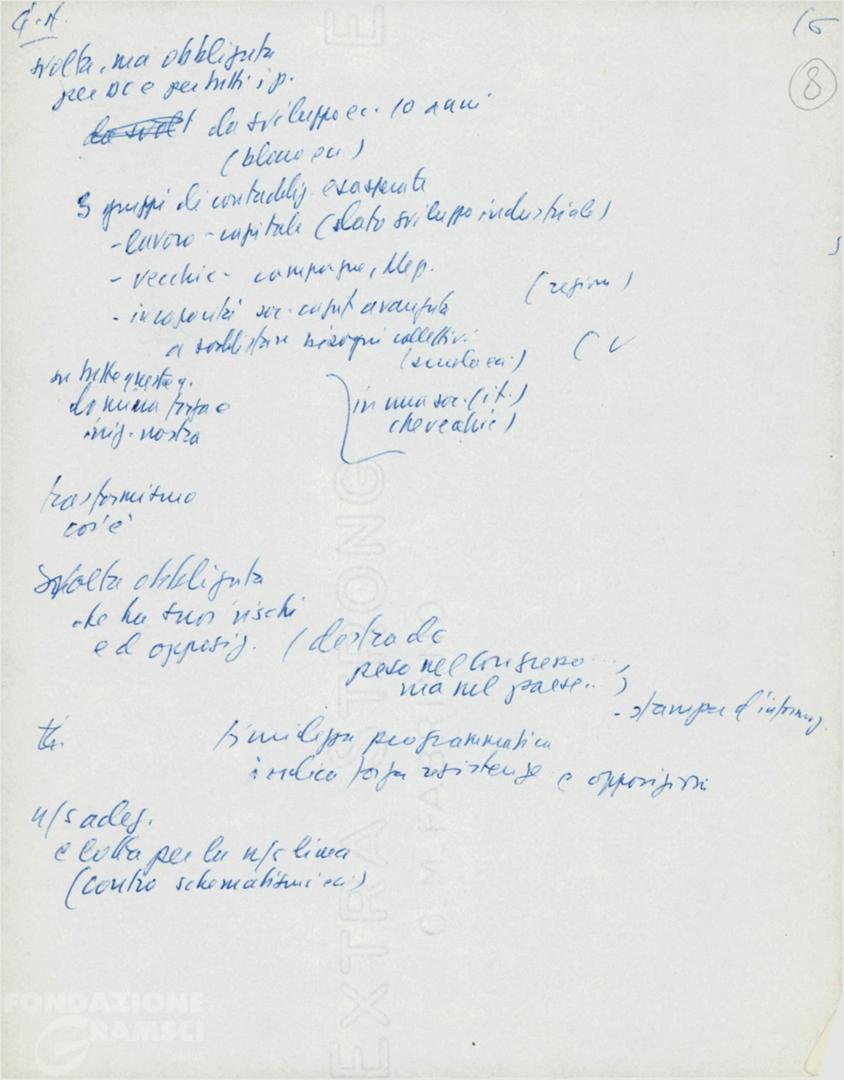 16
8
svolta, ma obbligata
per DC e per tutti i p.
da svolt da sviluppo ec. 10 anni
(blocco ecc)
3 gruppi di contraddiz. esasperate
- lavoro - capitale (dato sviluppo industriale)
- vecchie - campagne, Mep. (regioni)
- incapacità soc. capit avanzata
a soddisfare bisogni collettivi (
(scuola ecc)
su tutto questo
forza e
iniz. nostra
in una soc. (it.)
che vecchie)
trasformismo
cos'è
Svolta obbligata
che ha suoi rischi
ed opposiz. (destra dc
peso nel Congresso ...,
ma nel paese.. )
- stampa d'informaz.
timidezza programmatica
indica forza resistenze e opposizioni
n/s adeg.
e lotta per la n/s linea
(contro schematismi ecc)
EXTRA STRONG
G. M. FABRIANO
FONDAZIONE
GRAMSCI